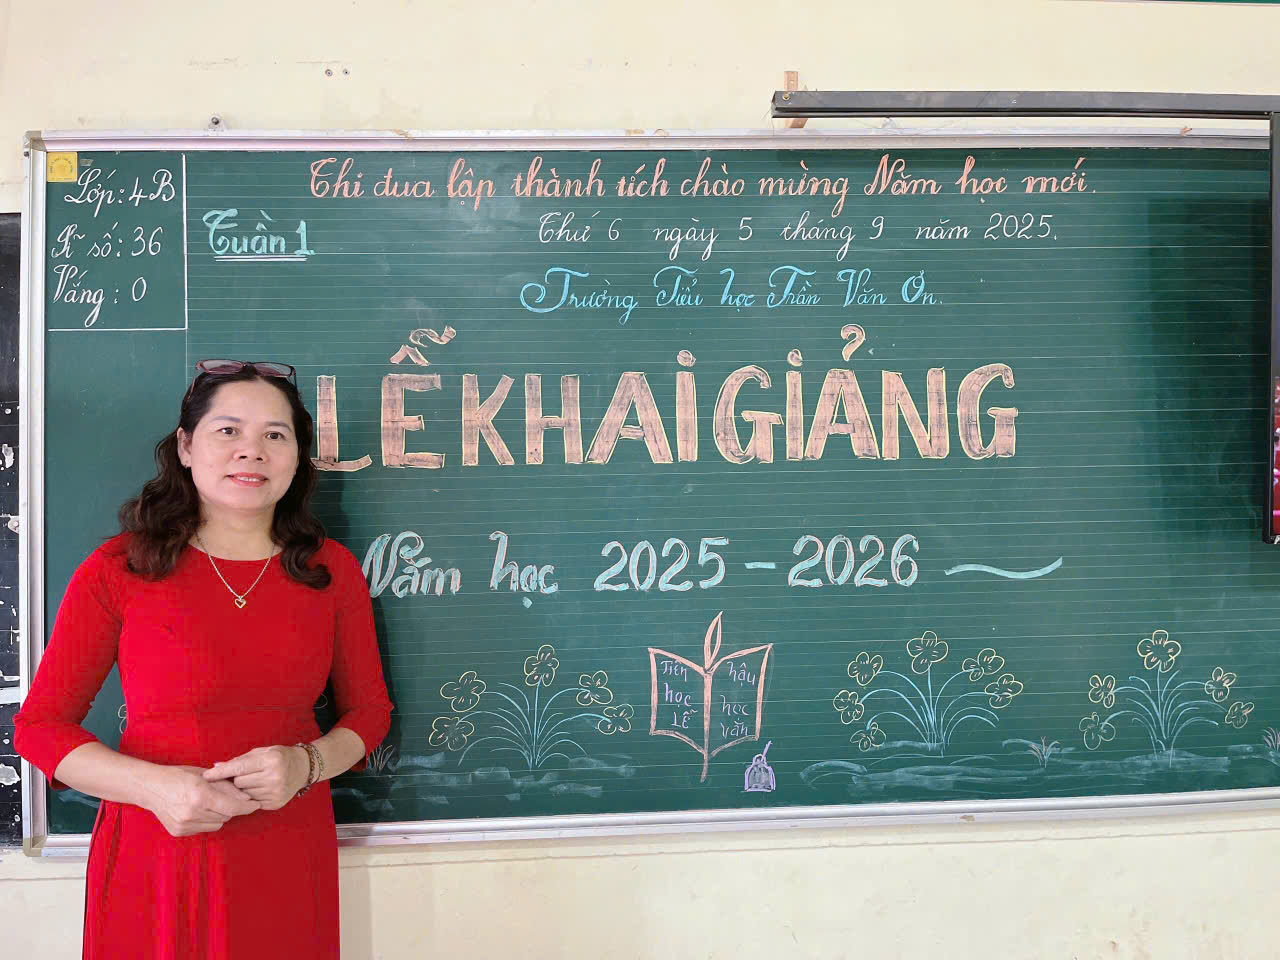 Lớp: 4B
Sĩ số: 36
Vắng: 0
Thi đua lập thành tích chào mừng Năm học mới.
Tuần 1
Thứ 6 ngày 5 tháng 9 năm 2025.
Trường Tiểu học Trần Văn Ơn.
LỄ KHAI GIẢNG
Năm học 2025 - 2026
Tiên
học
Lễ
hậu
học
văn